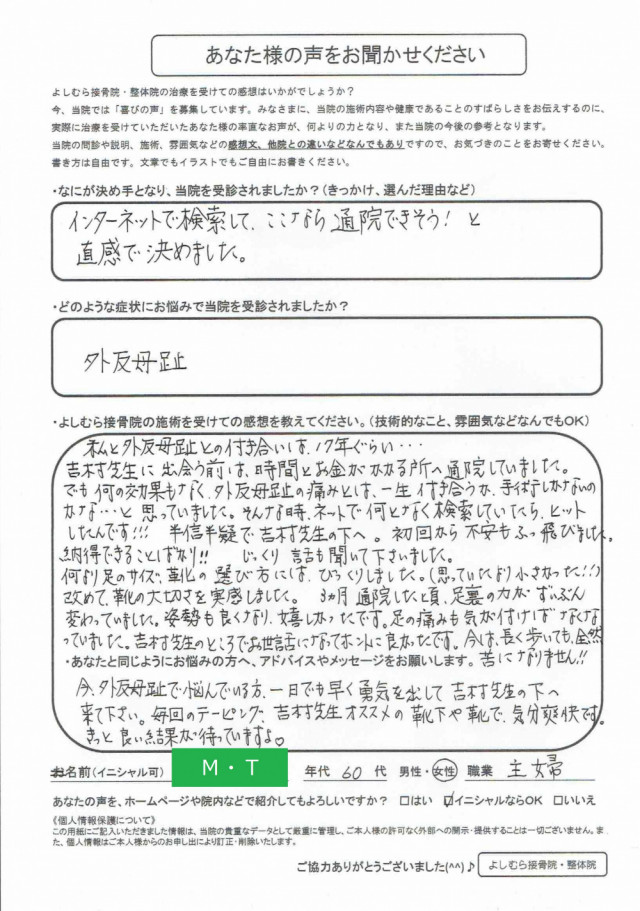 あなた様の声をお聞かせください
よしむら接骨院・整体院の治療を受けての感想はいかがでしょうか？
今、当院では「喜びの声」を募集しています。みなさまに、当院の施術内容や健康であることのすばらしさをお伝えするのに、
実際に治療を受けていただいたあなた様の率直なお声が、何よりの力となり、また当院の今後の参考となります。
当院の問診や説明、施術、雰囲気などの感想文、他院との違いなどなんでもありですので、お気づきのことをお寄せください。
書き方は自由です。文章でもイラストでもご自由にお書きください。
・なにが決め手となり、当院を受診されましたか？（きっかけ、選んだ理由など）
インターネットで検索して、ここなら通院できそう！と
直感で決めました。
・どのような症状にお悩みで当院を受診されましたか？
外反母趾
・よしむら接骨院の施術を受けての感想を教えてください。（技術的なこと、雰囲気などなんでもOK）
私と外反母趾との付き合いは、17年ぐらい・・・
吉村先生に出会う前は、時間とお金がかかる所へ通院していました。
でも何の効果もなく、外反母趾の痛みとは、一生付き合うか、手術しかないの
かな・・・と思っていました。そんな時、ネットで何となく検索していたら、ヒット
したんです!!! 半信半疑で吉村先生の下へ。初回から不安もふっ飛びました。
納得できることばかり!! じっくり話も聞いて下さいました。
何より足のサイズ、靴の選び方には、びっくりしました。（思っていたより小さかった!!）
改めて、靴の大切さを実感しました。3ヵ月通院した頃、足裏の力がずいぶん
変わっていました。姿勢も良くなり、嬉しかったです。足の痛みも気が付けばなくな
っていました。吉村先生のところでお世話になってホントに良かったです。今は、長く歩いても、全然
苦になりません!!
・あなたと同じようにお悩みの方へ、アドバイスやメッセージをお願いします。
今、外反母趾で悩んでいる方、一日でも早く勇気を出して吉村先生の下へ
来て下さい。毎回のテーピング、吉村先生オススメの靴下や靴で、気分爽快です。
きっと良い結果が待っていますよ♡
お名前（イニシャル可） M・T 年代 60代 男性・女性 職業 主婦
あなたの声を、ホームページや院内などで紹介してもよろしいですか？ □はい ☑イニシャルならOK □いいえ
《個人情報保護について》
この用紙にご記入いただきました情報は、当院の貴重なデータとして厳重に管理し、ご本人様の許可なく外部への開示・提供することは一切ございません。ま
た、個人情報はご本人様からのお申し出により訂正・削除いたします。
ご協力ありがとうございました(^^)♪ よしむら接骨院・整体院